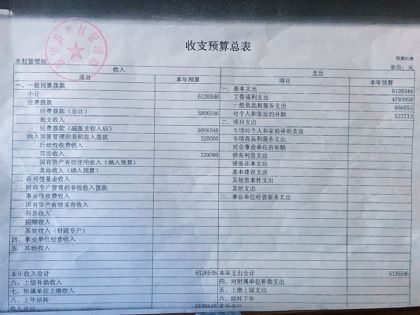 收支预算总表
预算01表
木材管理局
单位：元
收入 支出
项目 本年预算 项目 本年预算
一、一般预算拨款 一、基本支出 6126546
小计 6126546 工资福利支出
经费拨款 一般商品和服务支出
经费拨款（总计） 5806546 对个人和家庭的补助
抵支收入 二、项目支出
经费拨款（减抵支收入后） 5806546 专项对个人和家庭补助支出
纳入预算管理的非税收入拨款 320000 专项商品和服务支出
行政性收费收入 对企事业单位的补助
罚没收入 320000 债务利息支出
国有资产有偿使用收入（纳入预算） 债务还本支出
其他收入（纳入预算） 基本建设支出
二、政府性基金收入 其他资本性支出
三、财政专户管理的非税收入拨款 其他支出
事业性收费收入 三、事业单位经营服务支出
国有资产有偿使用收入
利息收入
捐赠收入
其他收入（财政专户）
四、事业单位经营收入
五、其他收入
本年收入合计 6126546 本年支出合计 6126546
六、上级补助收入 四、对附属单位补助支出
七、附属单位上缴收入 五、上缴上级支出
八、上年结转 六、结转下年
收入合计